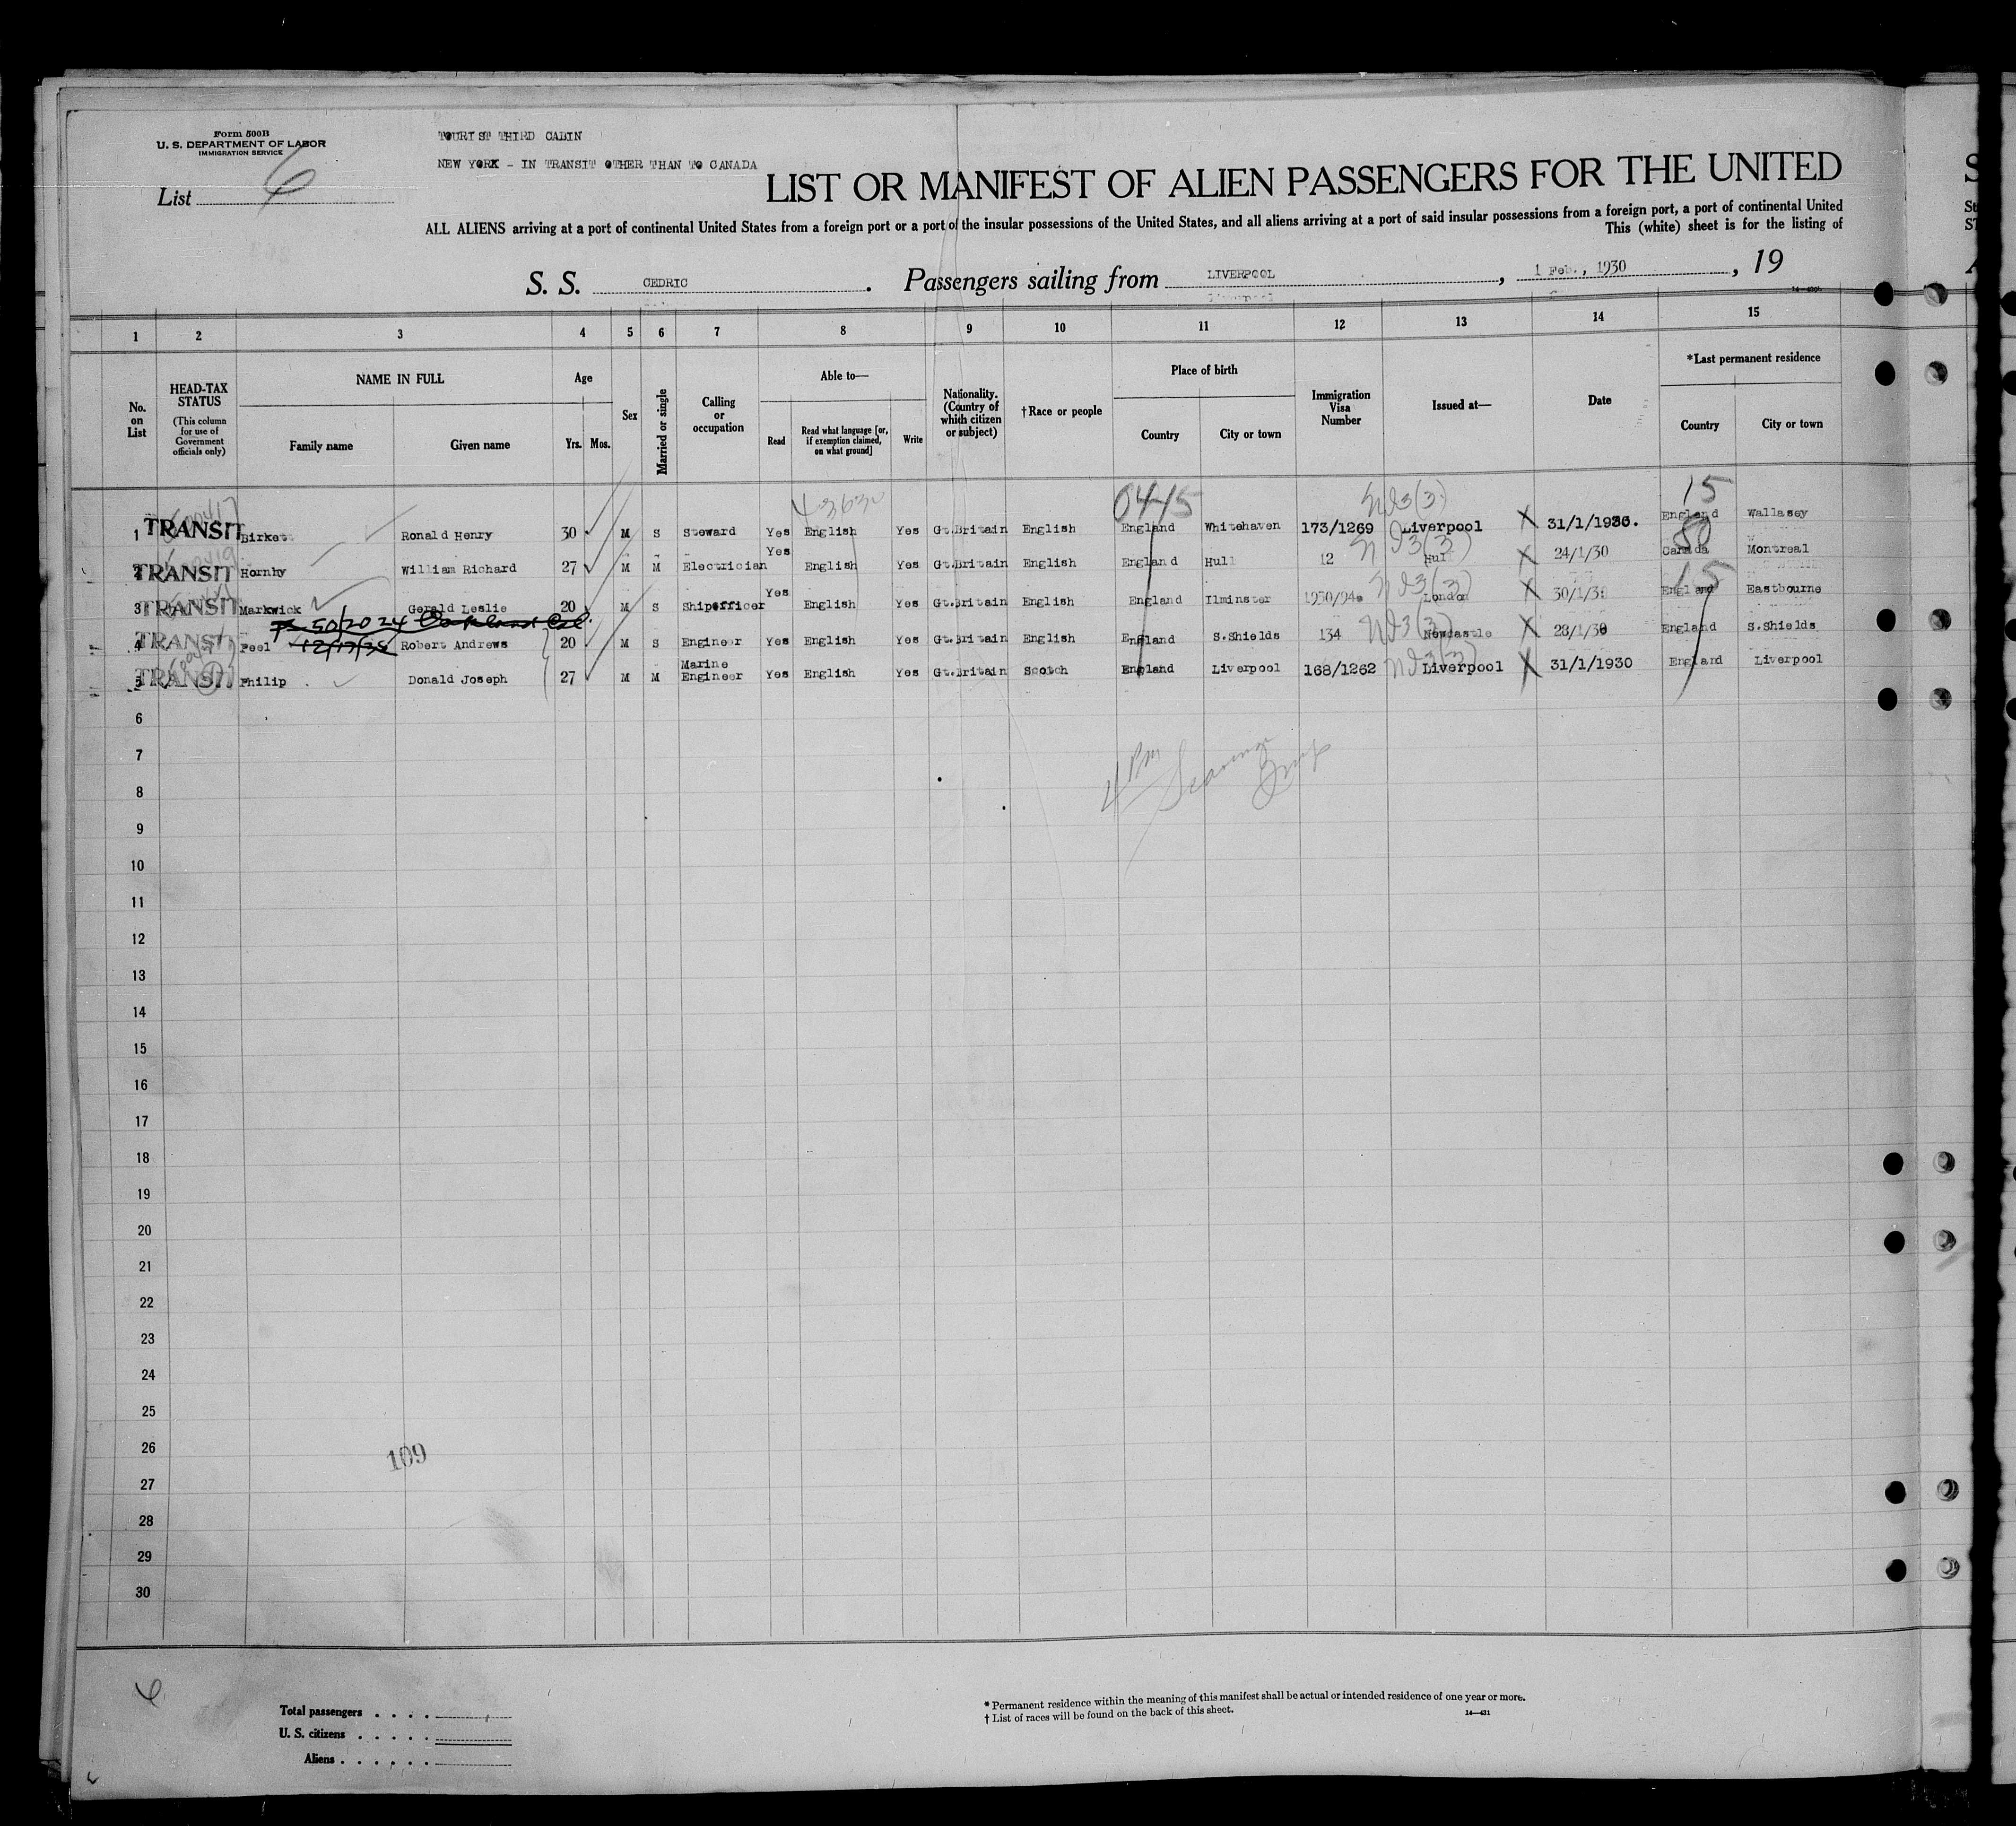 Form 500B
U. S. DEPARTMENT OF LABOR
IMMIGRATION SERVICE
List 6
TOURIST THIRD CABIN
NEW YORK - IN TRANSIT OTHER THAN TO CANADA
LIST OR MANIFEST OF ALIEN PASSENGERS FOR THE UNITED
ALL ALIENS arriving at a port of continental United States from a foreign port or a port of the insular possessions of the United States, and all aliens arriving at a port of said insular possessions from a foreign port, a port of continental United
This (white) sheet is for the listing of
S. S. CEDRIC. Passengers sailing from LIVERPOOL, 1 Feb., 1930, 19
1 2 3 4 5 6 7 8 9 10 11 12 13 14 15
No. on List
HEAD-TAX STATUS
(This column for use of Government officials only)
NAME IN FULL
Family name Given name
Age
Yrs. Mos.
Sex
Married or single
Calling or occupation
Able to—
Read
Read what language [or, if exemption claimed, on what ground]
Write
Nationality. (Country of which citizen or subject)
†Race or people
Place of birth
Country City or town
Immigration Visa Number
Issued at—
Date
*Last permanent residence
Country City or town
0445 15
1 TRANSIT Birket Ronald Henry 30 M S Steward Yes English Yes Gt.Britain English England Whitehaven 173/1269 Liverpool X 31/1/1930. England Wallasey
50
2 TRANSIT Hornby William Richard 27 M M Electrician Yes English Yes Gt.Britain English England Hull 12 Hull X 24/1/30 Canada Montreal
15
3 TRANSIT Markwick Gerald Leslie 20 M S Shipofficer Yes English Yes Gt.Britain English England Ilminster London X England Eastbourne
50/2024 Oakland Cal.
4 TRANSIT Peel 12/17/35 Robert Andrews 20 M S Engineer Yes English Yes Gt.Britain English England S.Shields 134 Newcastle X 28/1/30 England S.Shields
5 TRANSIT Philip Donald Joseph 27 M M Marine Engineer Yes English Yes Gt.Britain Scotch England Liverpool 168/1262 Liverpool X 31/1/1930 England Liverpool
6
7
4 PM
8
9
10
11
12
13
14
15
16
17
18
19
20
21
22
23
24
25
26
109
27
28
29
30
6
Total passengers
U. S. citizens
Aliens
* Permanent residence within the meaning of this manifest shall be actual or intended residence of one year or more.
† List of races will be found on the back of this sheet.
14—431